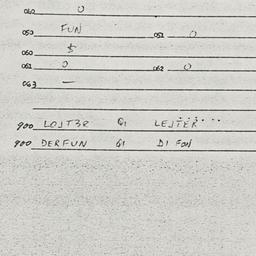 060 0
050 FUN 051 0
060 5
061 0 062 0
063 —
900 LOJT3R G1 LEJTER
900 DERFUN G1 DI FON